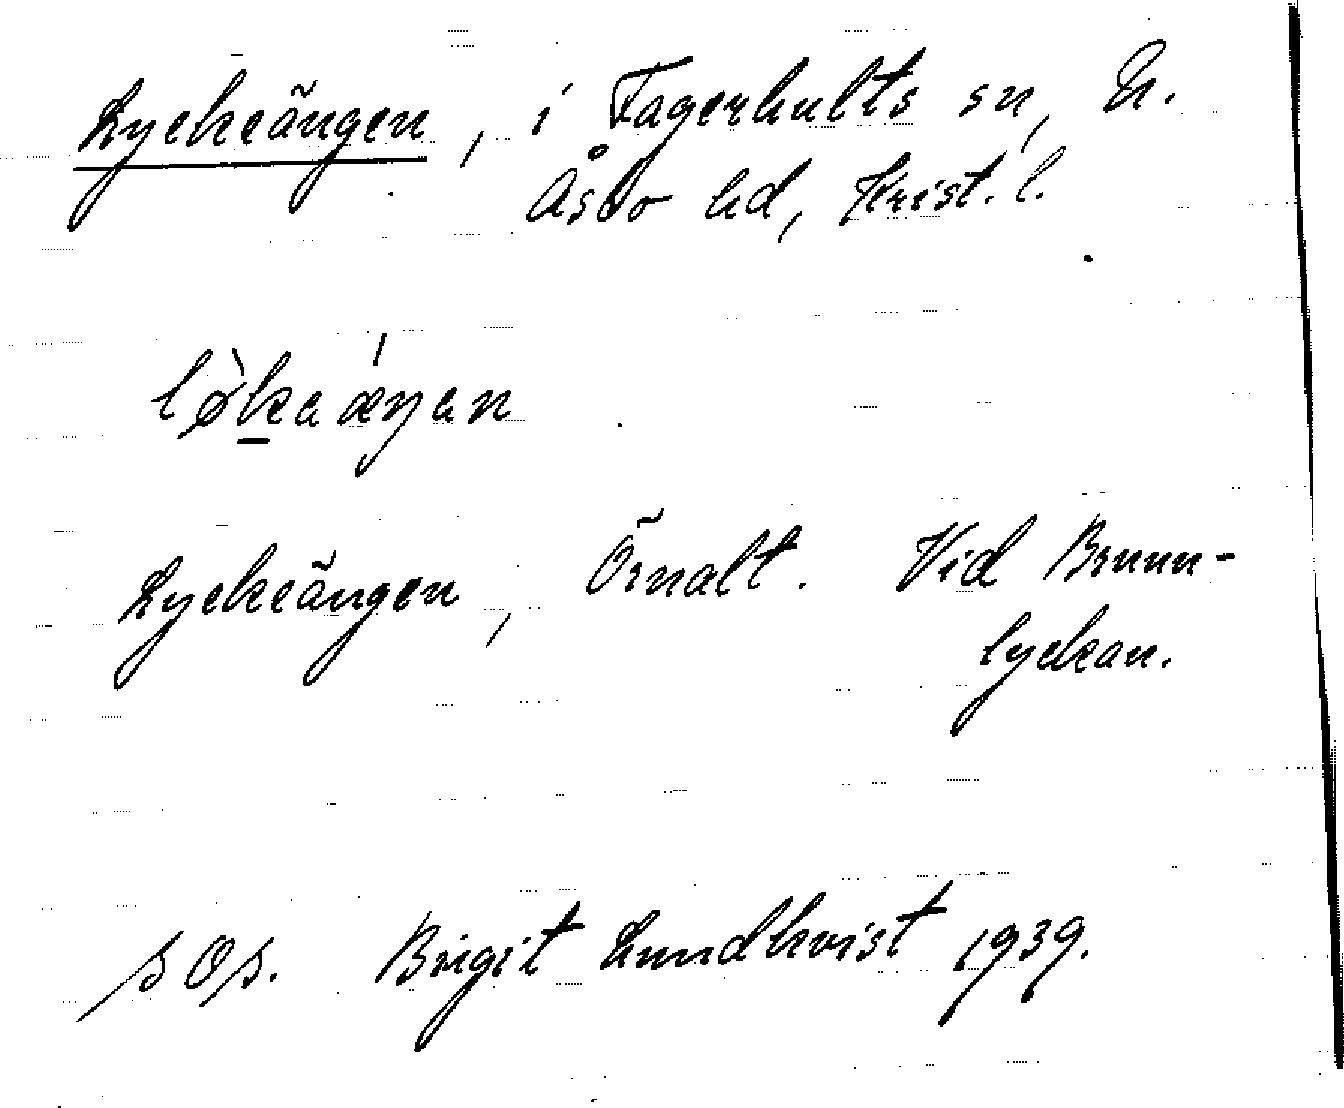 Lyckeängen, i Fagerhults sn, N.
Åsbo hd, Krist. l.
lø̀kaæ´ŋan
Lyckeängen, Örnalt. Vid Brunn-
lyckan.
s Os. Birgit Lundkvist 1939.